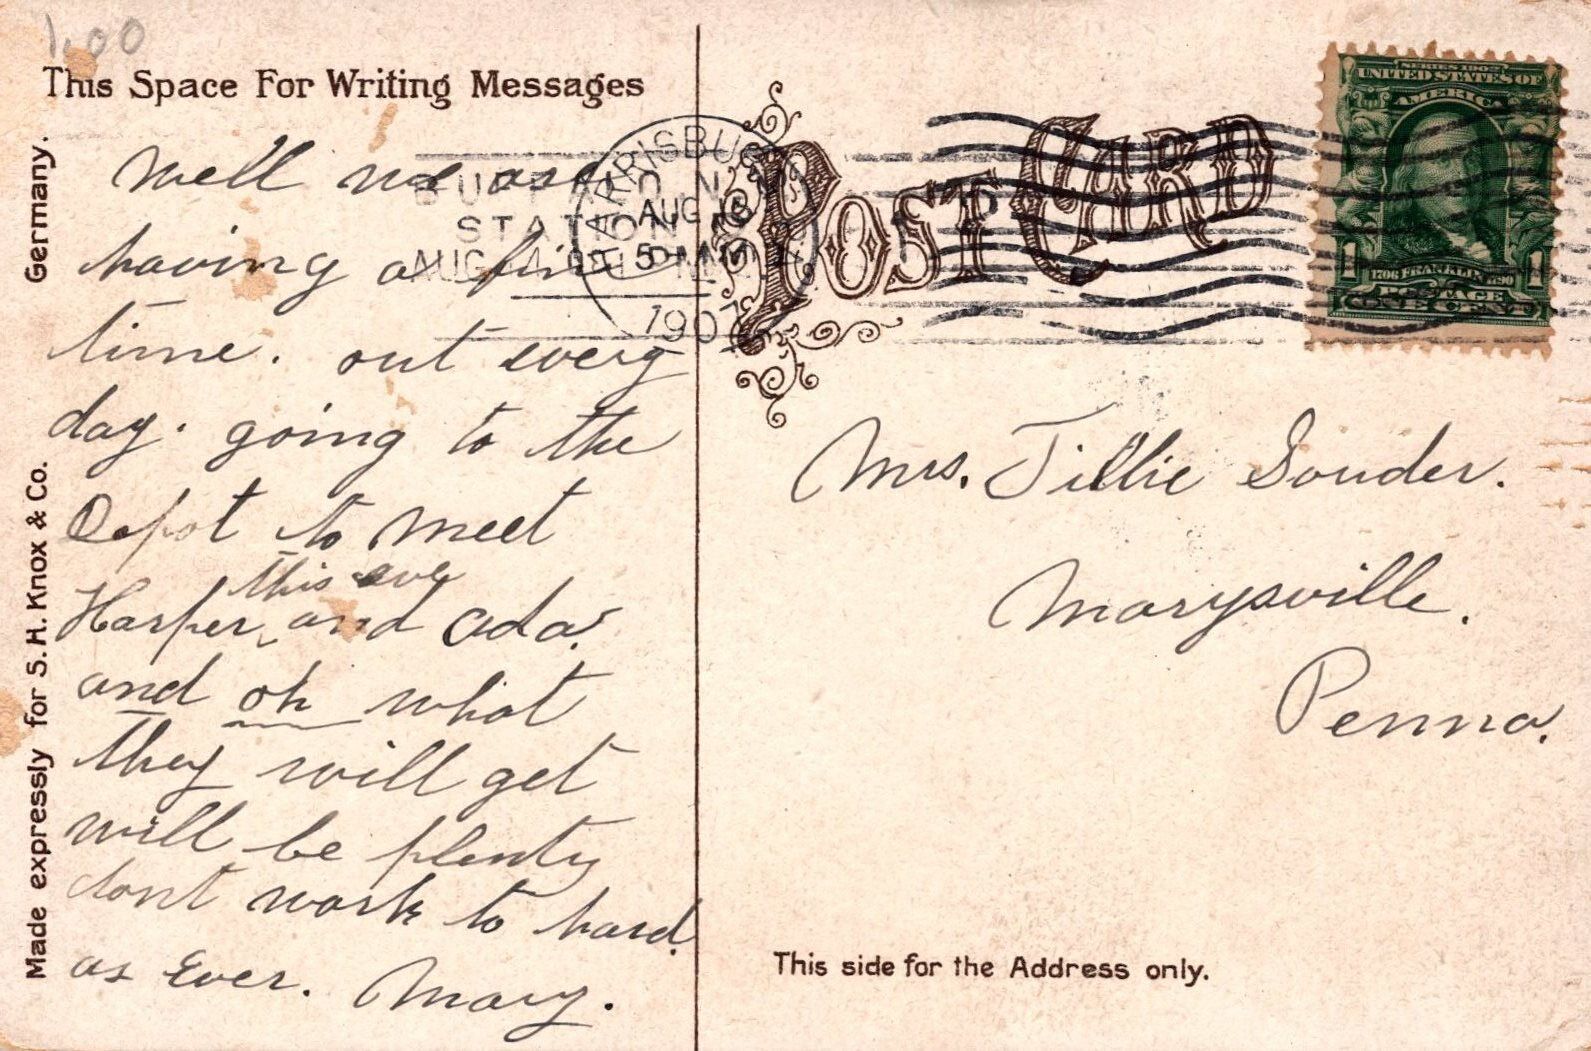 1.00
This Space For Writing Messages
Well we are
having a fine
time. out every
day. going to the
Depot to meet
this eve
Harper, and Ada.
and oh what
they will get
will be plenty
dont work to hard.
as Ever. Mary.
Made expressly for S. H. Knox & Co. Germany.
BUFFALO, N.
STATION
AUG
HARRISBURG
AUG
5
1907
POST CARD
SERIES 1902
UNITED STATES OF
AMERICA
1 1706 FRANKLIN 1790 1
POSTAGE
Mrs. Tillie Souder.
Marysville.
Penna.
This side for the Address only.